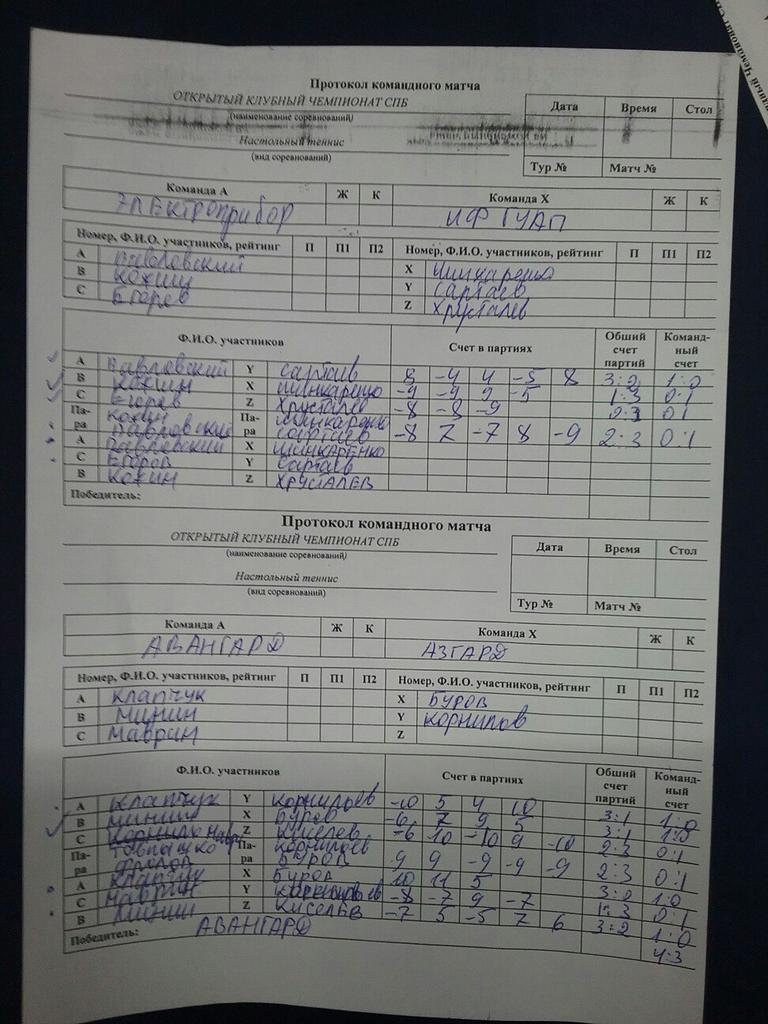 Протокол командного матча
ОТКРЫТЫЙ КЛУБНЫЙ ЧЕМПИОНАТ СПБ
(наименование соревнований)
Дата Время Стол
Настольный теннис
(вид соревнований)
Тур № Матч №
Команда А Ж К Команда X Ж К
ЭЛЕКТРОПРИБОР ИФ ГУАП
Номер, Ф.И.О. участников, рейтинг П П1 П2 Номер, Ф.И.О. участников, рейтинг П П1 П2
А Павловский X Шинкаренко
В Кохин Y Сартаев
С Егоров Z Хрусталев
Ф.И.О. участников Счет в партиях Общий счет партий Команд-ный счет
А Павловский Y Сартаев 8 -4 4 -5 8 3:2 1:0
В Кохин X Шинкаренко -9 -9 9 -5 1:3 0:1
С Егоров Z Хрусталев -8 -8 -9 0:3 0:1
Па-ра Кохин Павловский Па-ра Шинкаренко Сартаев -8 7 -7 8 -9 2:3 0:1
А Павловский X ШИНКАРЕНКО
С ЕГОРОВ Y Сартаев
В КОХИН Z ХРУСТАЛЕВ
Победитель:
Протокол командного матча
ОТКРЫТЫЙ КЛУБНЫЙ ЧЕМПИОНАТ СПБ
(наименование соревнований)
Дата Время Стол
Настольный теннис
(вид соревнований)
Тур № Матч №
Команда А Ж К Команда X Ж К
АВАНГАРД АЗГАРД
Номер, Ф.И.О. участников, рейтинг П П1 П2 Номер, Ф.И.О. участников, рейтинг П П1 П2
А КЛАПЧУК X БУРОВ
В МИНИН Y КОРНИЛОВ
С МАВРИН Z
Ф.И.О. участников Счет в партиях Общий счет партий Команд-ный счет
А КЛАПЧУК Y Корнильев -10 5 4 10 3:1 1:0
В МИНИН X Буров -6 7 9 5 3:1 1:0
С Z Киселев -6 10 -10 9 -10 2:3 0:1
Па-ра Па-ра Корнильев БУРОВ 9 9 -9 -9 -9 2:3 0:1
А КЛАПЧУК X БУРОВ 10 11 5 3:0 1:0
С МАВРИН Y -8 -7 9 -7 1:3 0:1
В МИНИН Z КИСЕЛЬВ -7 5 -5 7 6 3:2 1:0
Победитель: АВАНГАРД 4:3